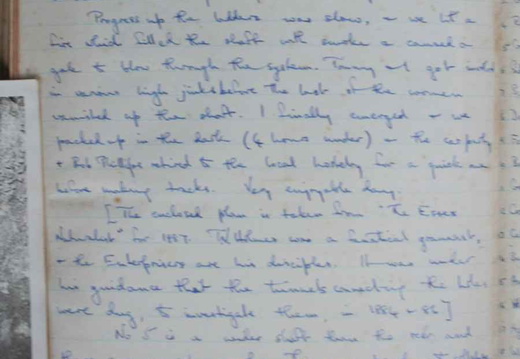 Progress up the ladders was slow, + we lit a
fire which filled the shaft with smoke + caused a
gale to blow through the system. Tommy + I got
in various high jinks before the last of the women
vanished up the shaft. I finally emerged + we
packed up in the dark (4 hours under) + the car party
+ Bob Phillips retired to the local hostelry for a quick one
before making tracks. Very enjoyable day.
[The enclosed plan is taken from "The Essex
Naturalist" for 1887. TV Holmes was a fanatical
+ the Enterprisers are his disciples. It was under
his guidance that the tunnels connecting the holes
were dug, to investigate them, in 1884 + 86]
No 5 is a wider shaft than the rest and